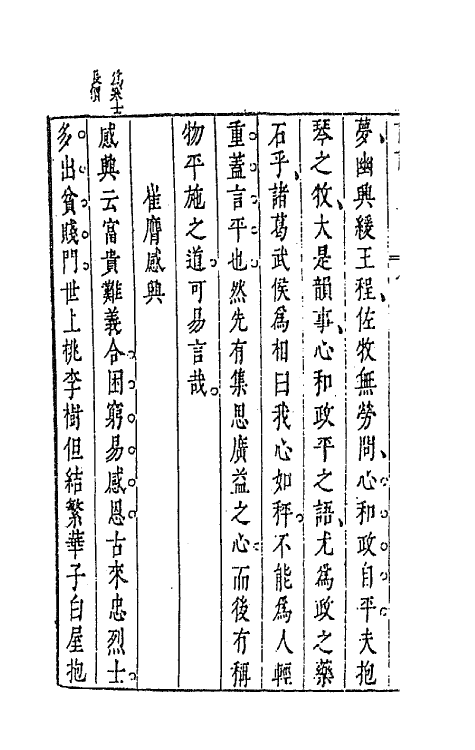 夢幽興緩王程佐牧無勞問心和政自平夫抱
琴之牧大是韻事心和政平之語尤為政之藥
石乎諸葛武侯為相曰我心如秤不能為人輕
重蓋言平也然先有集思廣益之心而後有稱
物平施之道可易言哉
崔膺感興
感興云富貴難義合困窮易感恩古來忠烈士
多出貧賤門世上桃李樹但結繁華子白屋抱
士
長價